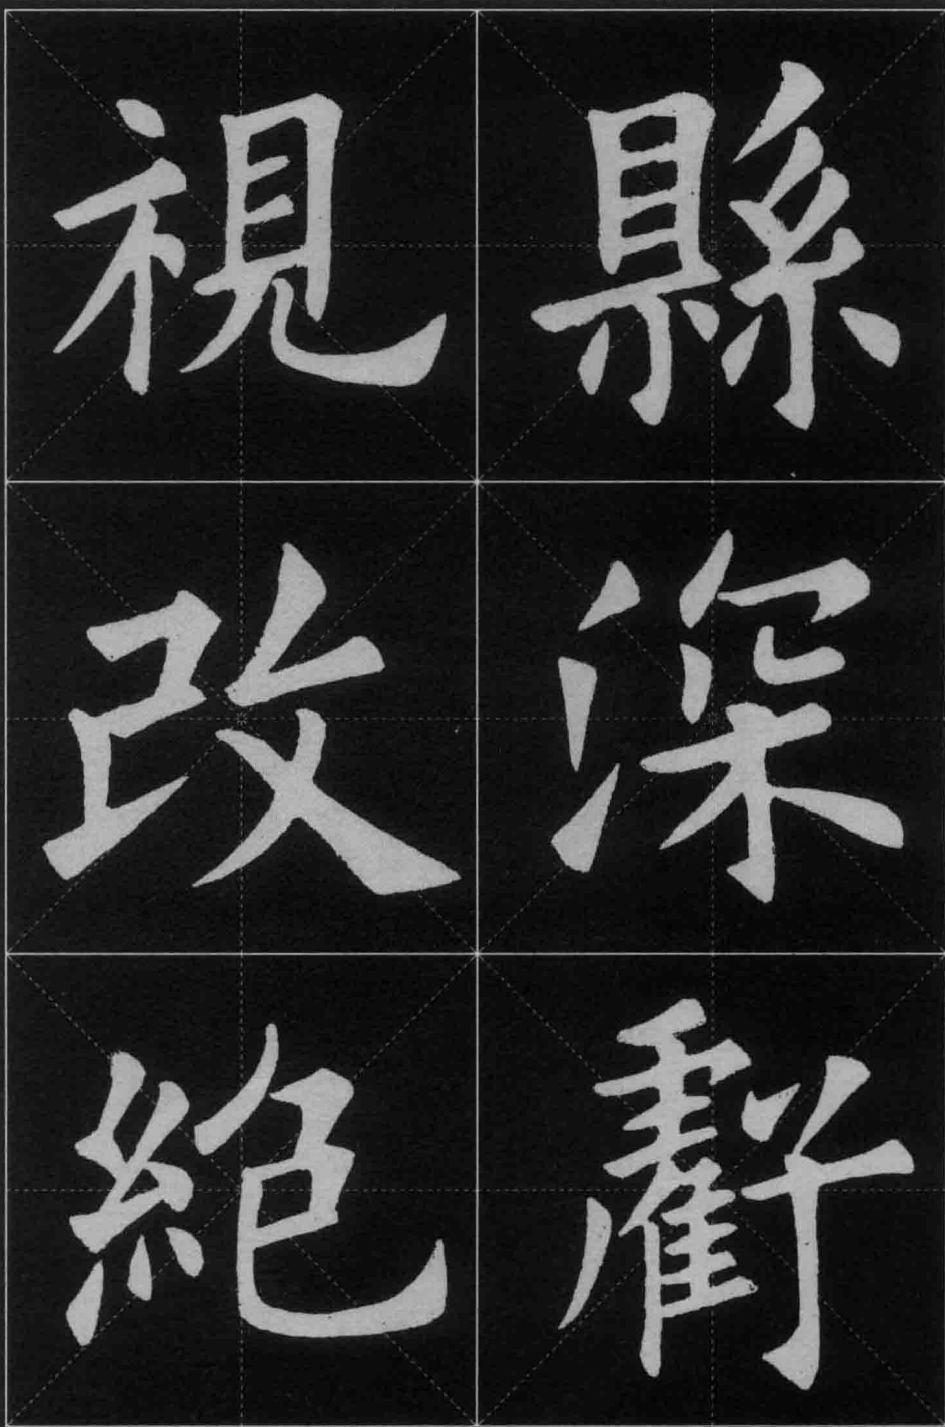 縣深虧
視改絕